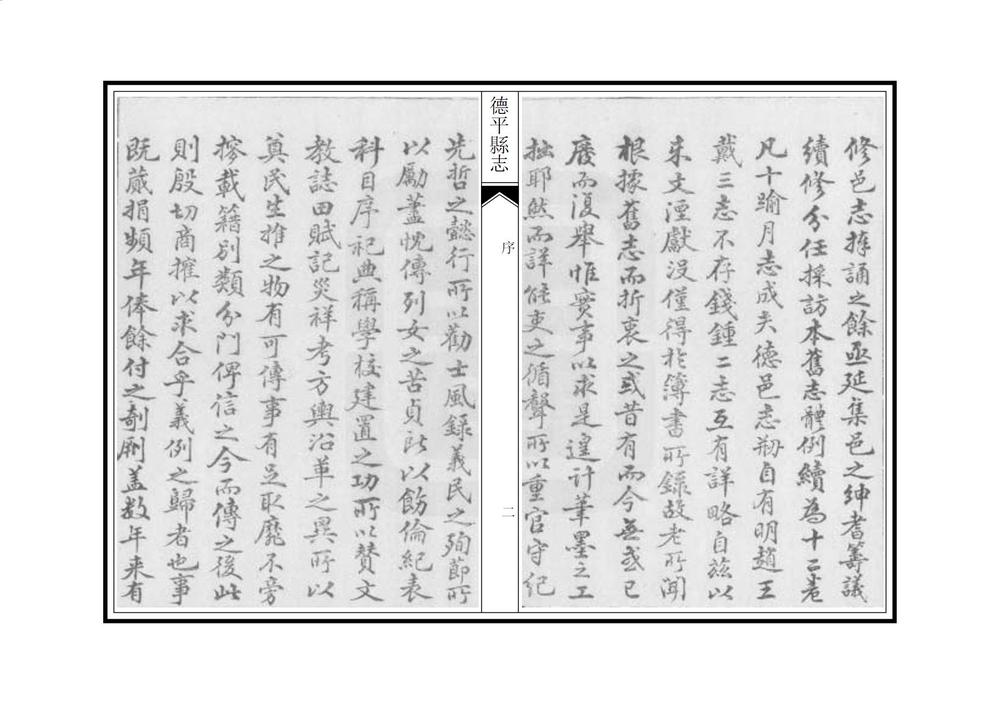 修邑志撙誦之餘亟延集邑之紳耆籌議
續修分任採訪本舊志體例續為十二卷
凡十踰月志成夫德邑志刱自有明趙王
戴三志不存錢鍾二志互有詳略自茲以
來文湮獻沒僅得於簿書所錄故老所聞
根據舊志而折衷之或昔有而今無或已
廢而復舉惟實事以求是遑計筆墨之工
拙耶然而詳能吏之循聲所以重官守紀
德平縣志
序
二
先哲之懿行所以勸士風錄義民之殉節所
以勵藎忱傳列女之苦貞所以飭倫紀表
科目序祀典稱學校建置之功所以贊文
教誌田賦記災祥考方輿沿革之異所以
奠民生推之物有可傳事有足取靡不旁
搜載籍別類分門俾信之今而傳之後此
則殷切商搉以求合乎義例之歸者也事
既蕆捐頻年俸餘付之剞劂蓋數年來有